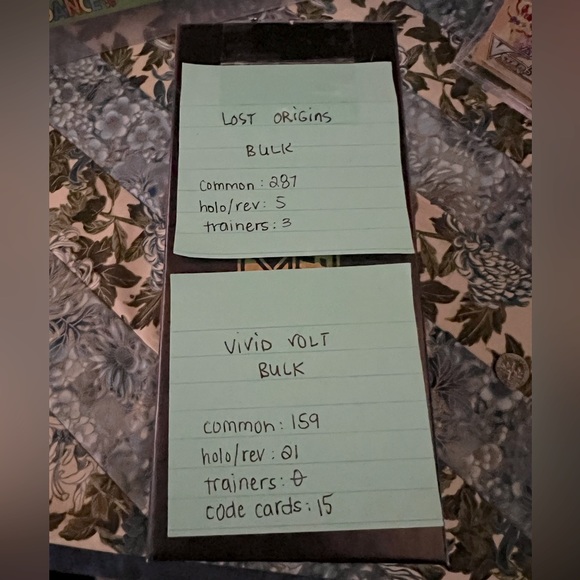 DANCE
LOST ORIGINS
BULK
common: 287
holo/rev: 5
trainers: 3
VIVID VOLT
BULK
common: 159
holo/rev: 21
trainers: 0
code cards: 15